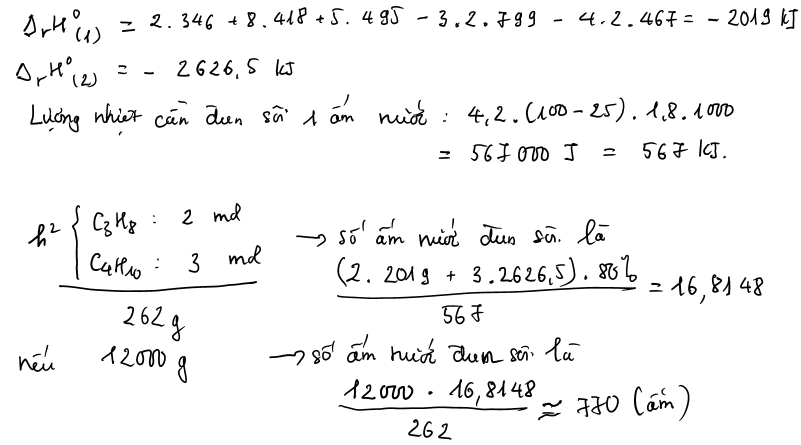 ΔrH⁰(1) = 2.346 + 8.418 + 5.495 - 3.2.799 - 4.2.467 = - 2019 kJ
ΔrH⁰(2) = - 2626,5 kJ
Lượng nhiệt cần đun sôi 1 ấm nước : 4,2.(100-25).1,8.1000
= 567000 J = 567 kJ.
h² { C₃H₈ : 2 mol
C₄H₁₀ : 3 mol
262 g
→ số ấm nước đun sôi là
(2.2019 + 3.2626,5).80% / 567 = 16,8148
nếu 12000 g → số ấm nước đun sôi là
12000 . 16,8148 / 262 ≈ 770 (ấm)